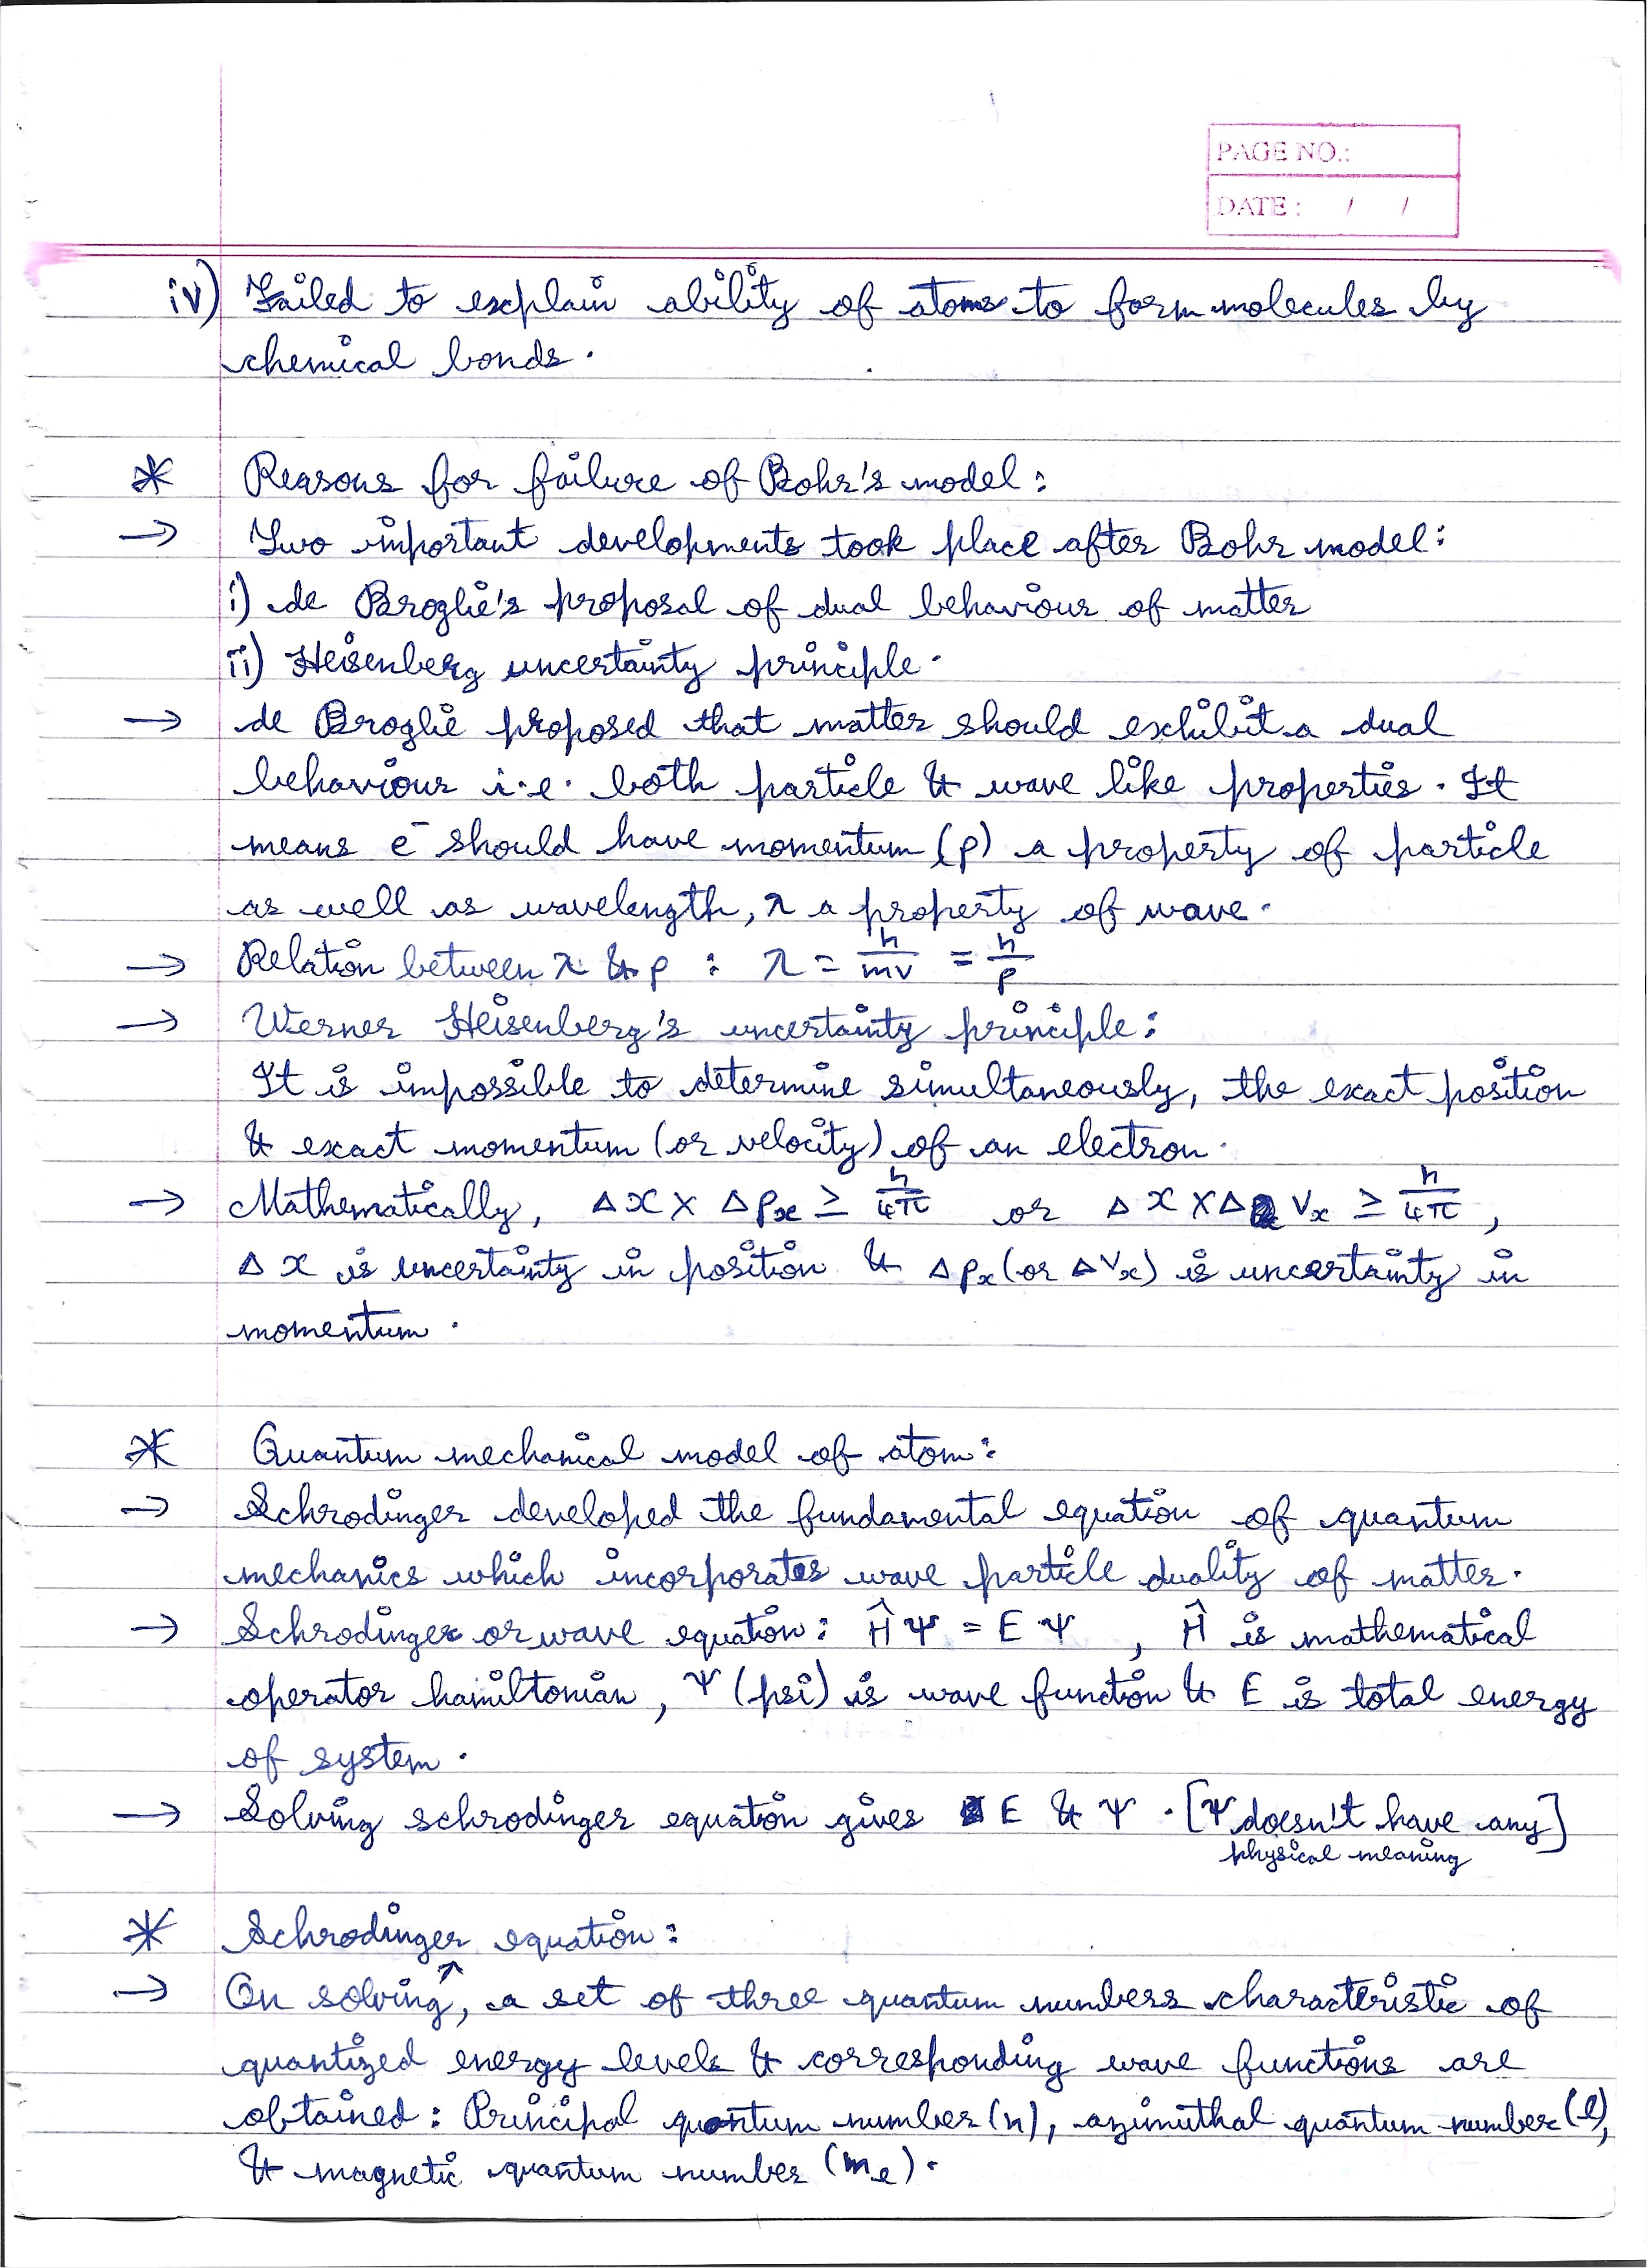 PAGE NO.:
DATE : / /
iv) Failed to explain ability of atoms to form molecules by
chemical bonds.
* Reasons for failure of Bohr's model:
→ Two important developments took place after Bohr model:
i) de Broglie's proposal of dual behaviour of matter
ii) Heisenberg uncertainty principle.
→ de Broglie proposed that matter should exhibit a dual
behaviour i.e. both particle & wave like properties. It
means e⁻ should have momentum (p) a property of particle
as well as wavelength, λ a property of wave.
→ Relation between λ & p : λ = h/mv = h/p
→ Werner Heisenberg's uncertainty principle:
It is impossible to determine simultaneously, the exact position
& exact momentum (or velocity) of an electron.
→ Mathematically, Δx × Δpₓ ≥ h/4π or Δx × Δ vₓ ≥ h/4π,
Δx is uncertainty in position & Δpₓ (or Δvₓ) is uncertainty in
momentum.
* Quantum mechanical model of atom:
→ Schrodinger developed the fundamental equation of quantum
mechanics which incorporates wave particle duality of matter.
→ Schrodinger or wave equation: Ĥψ = Eψ , Ĥ is mathematical
operator hamiltonian, ψ (psi) is wave function & E is total energy
of system.
→ Solving schrodinger equation gives E & ψ . [ψ doesn't have any]
physical meaning
* Schrodinger equation:
→ On solving↑, a set of three quantum numbers characteristic of
quantized energy levels & corresponding wave functions are
obtained: Principal quantum number (n), azimuthal quantum number (l),
& magnetic quantum number (mₗ).